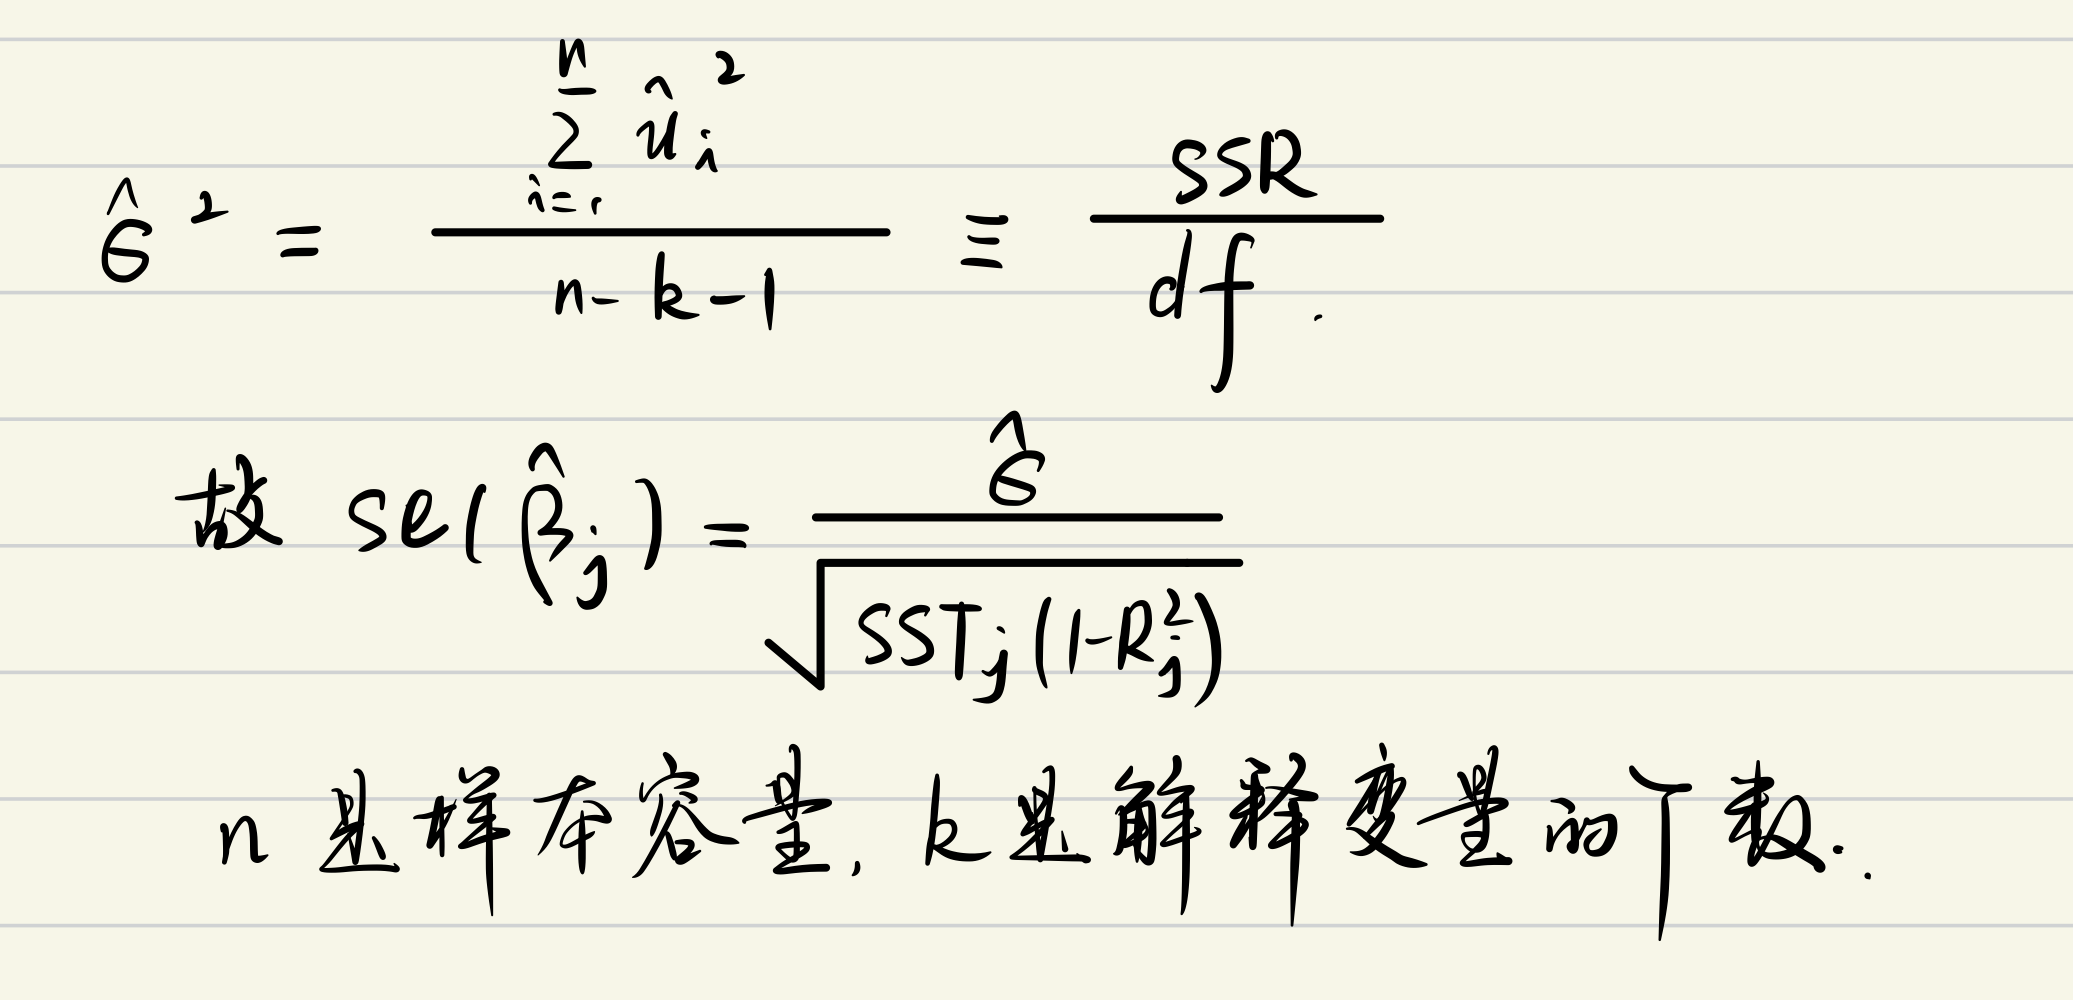 $\hat{\sigma}^2 = \frac{\sum_{i=1}^{n} \hat{u}_i^2}{n-k-1} \equiv \frac{SSR}{df}.$
故 $se(\hat{\beta}_j) = \frac{\hat{\sigma}}{\sqrt{SST_j(1-R_j^2)}}$
n是样本容量, k是解释变量的个数.